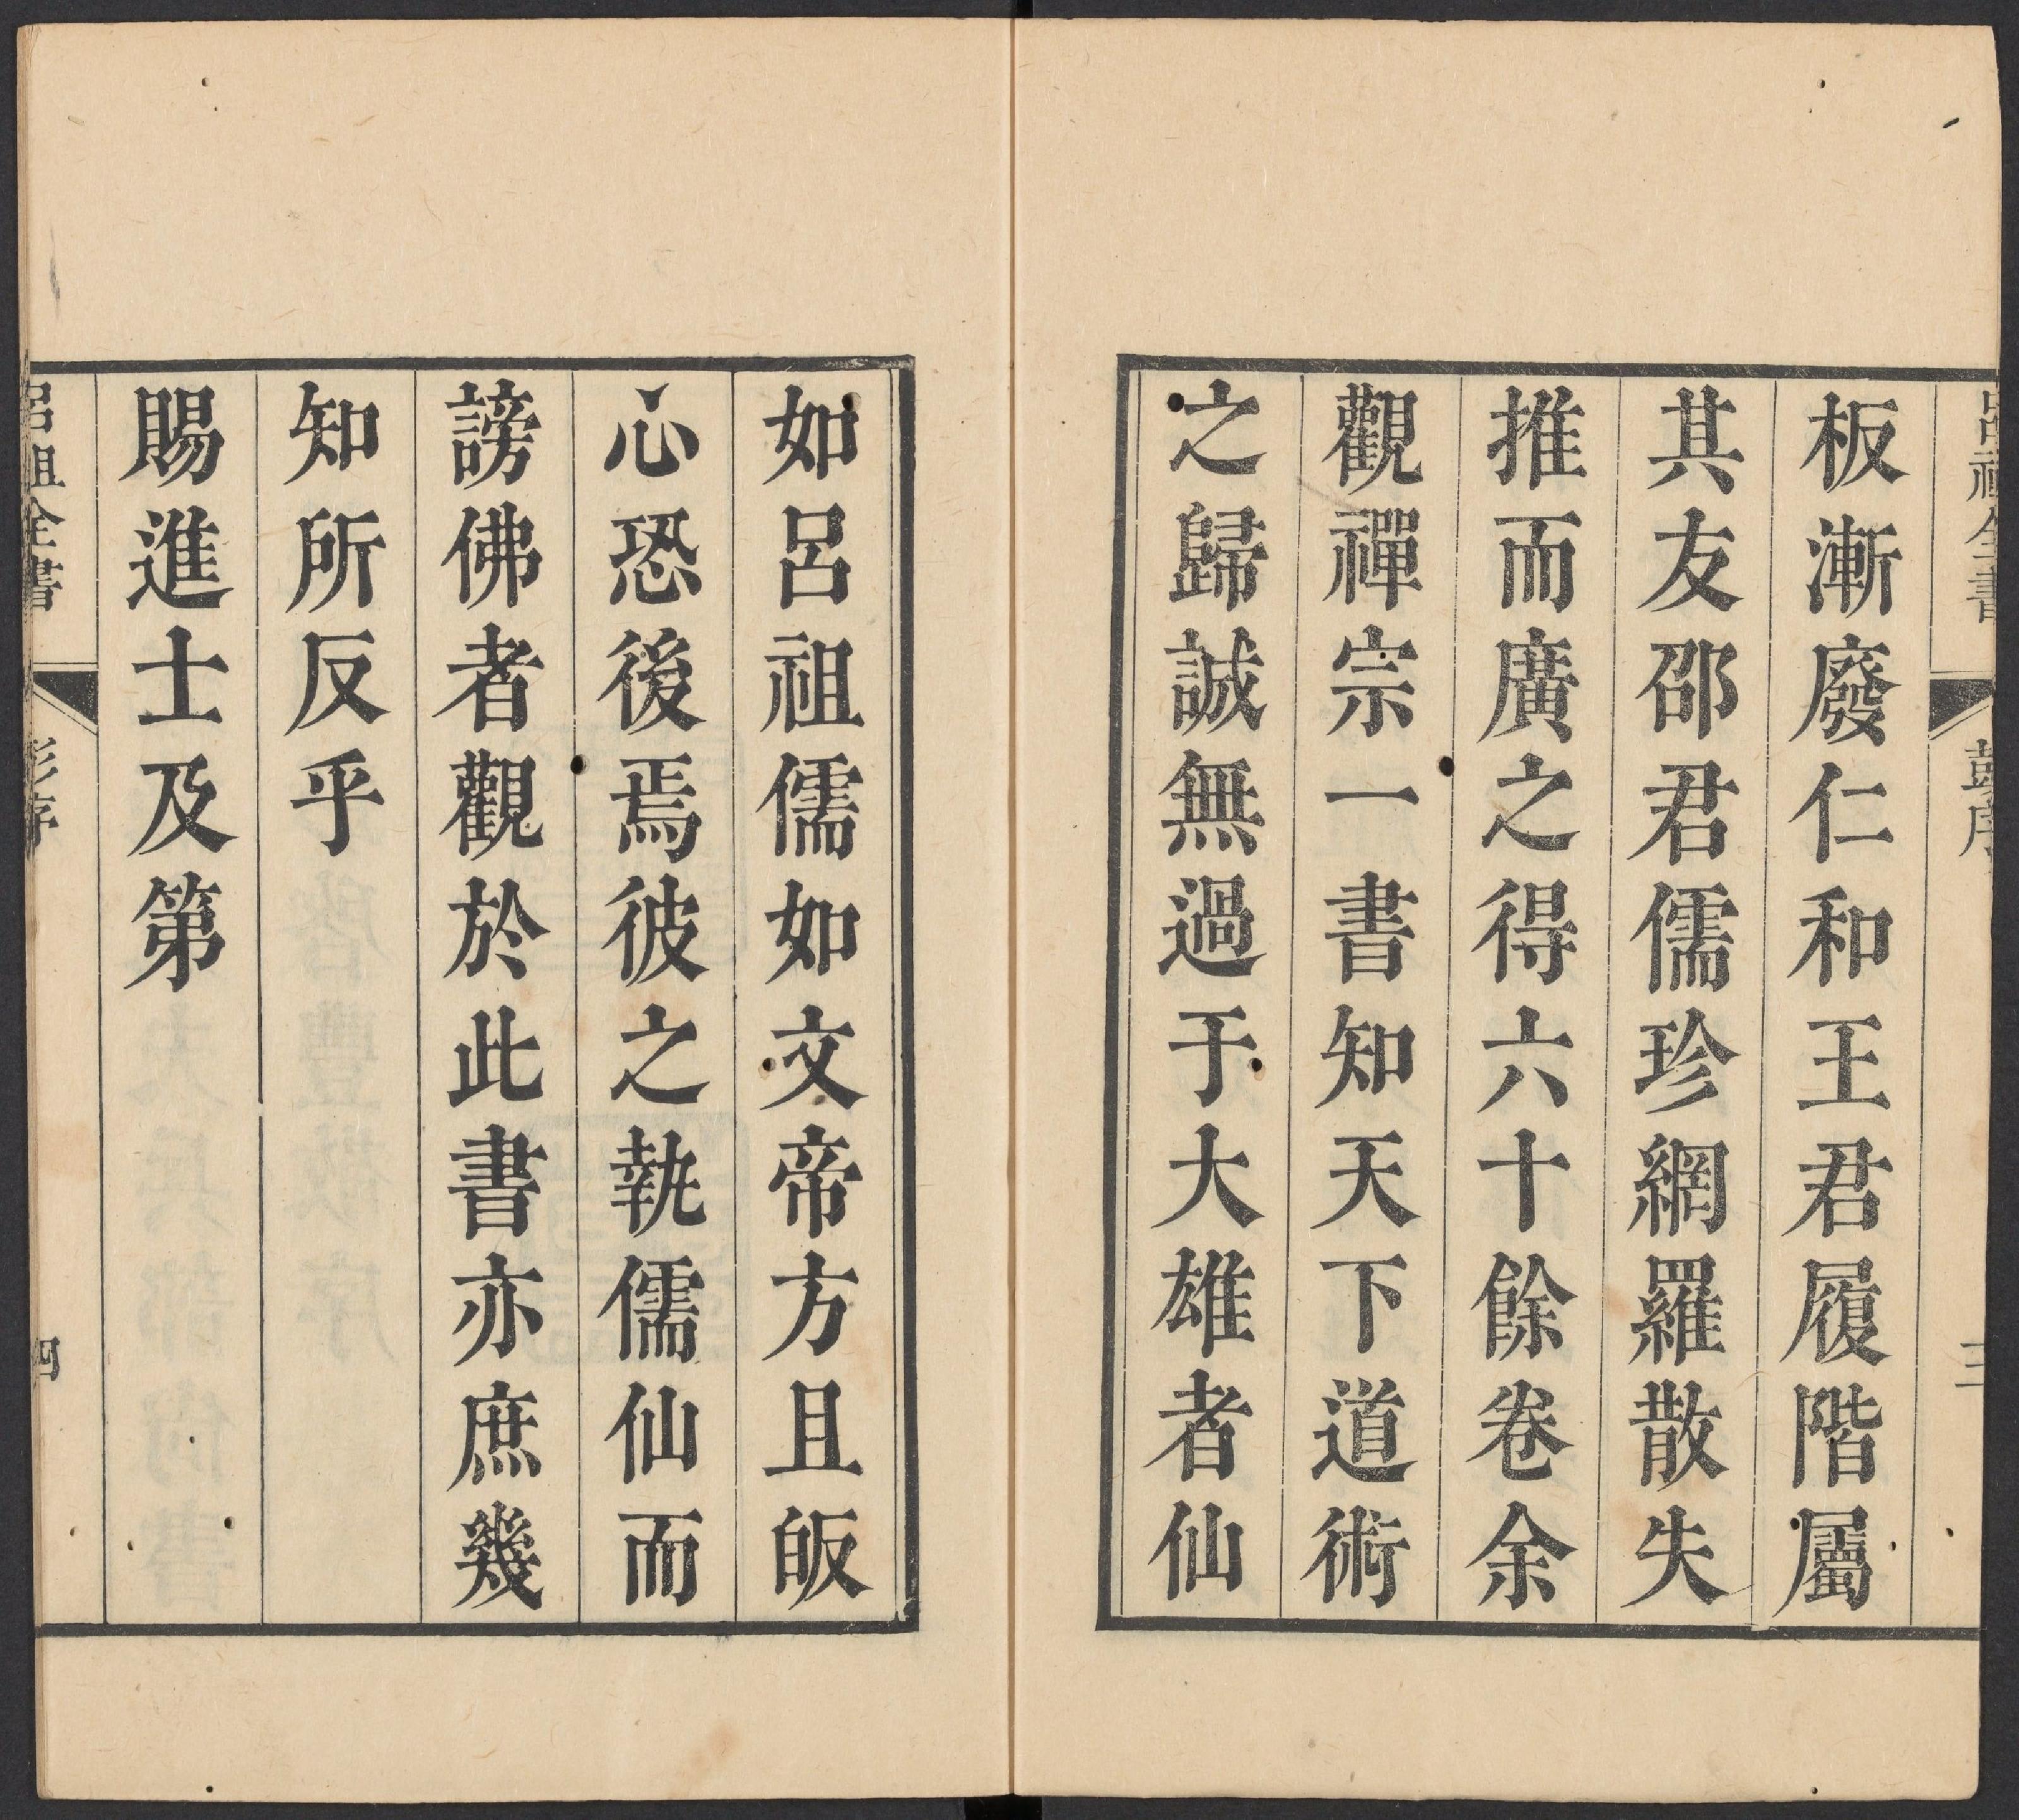 呂祖全書 彭序 三
板漸廢仁和王君履階屬
其友邵君儒珍網羅散失
推而廣之得六十餘卷余
觀禪宗一書知天下道術
之歸誠無過于大雄者仙
如呂祖儒如文帝方且皈
心恐後焉彼之執儒仙而
謗佛者觀於此書亦庶幾
知所反乎
賜進士及第
呂祖全書 彭序 四